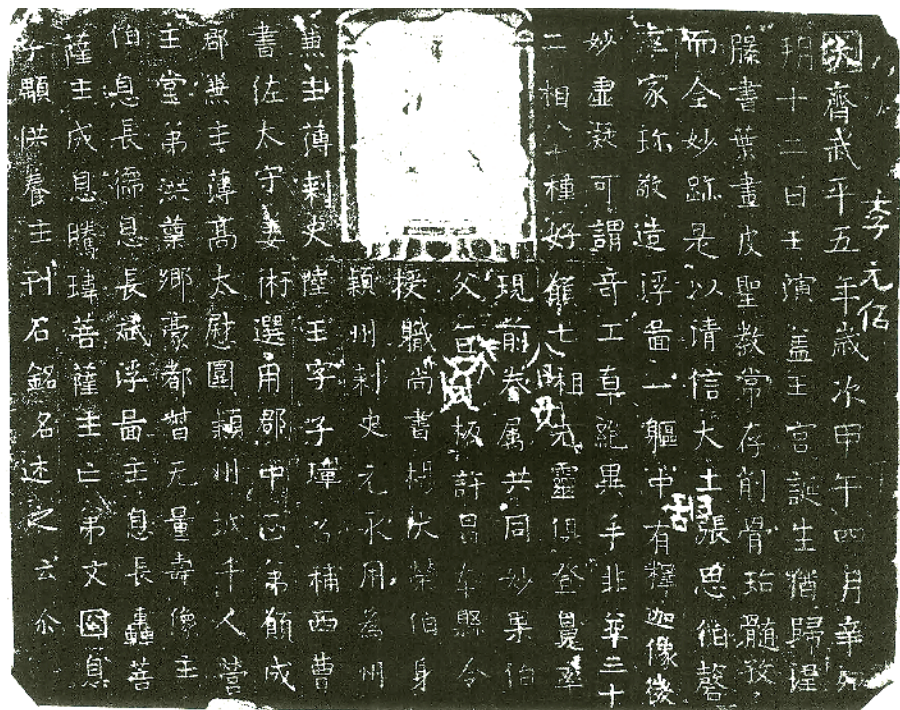 李元佰
齊武平五年歲次甲午四月辛卯
朔十二日王演蓋王宮誕生猶歸涅
牒書葉畫皮聖教常存削骨玷髓孜
而全妙跡是以请信大士張思伯罄
家珎敬造浮畐一軀中有釋迦像
妙虛凝可謂奇工直異手非華三十
二相八十種好七祖先靈俱登
現前眷属共同妙果伯
父板許昌縣令
授職尚書楊伏榮伯身
潁州刺史元永用為州
兼主薄刺史陸王字子璋公補西曹
書佐太守姜術選用郡中正弟願成
郡兼主薄髙太尉圍潁州城千人營
主堂弟洪葉鄉豪都督无量壽像主
伯息長儒息長斌浮畐主息長轟菩
薩主成息騰瑋菩薩主亡弟文息
子顯供養主刊石銘名述之云尒